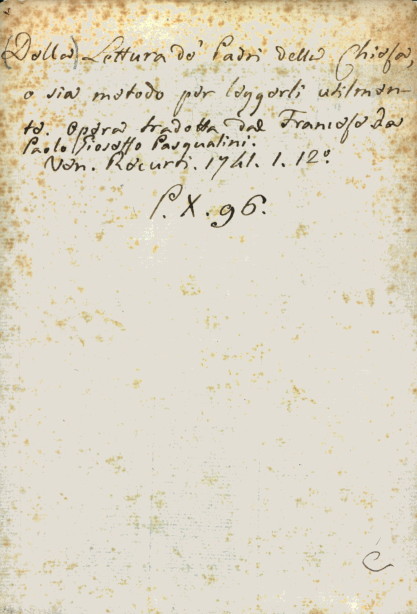 (Della) Lettura de' Padri della Chiesa,
o sia metodo per leggerli utilmen-
te. Opera tradotta dal Francese da
Paolo Gioseffo Pasqualini.
Ven. Recurti. 1741. 1. 12º.
P. X. 96.